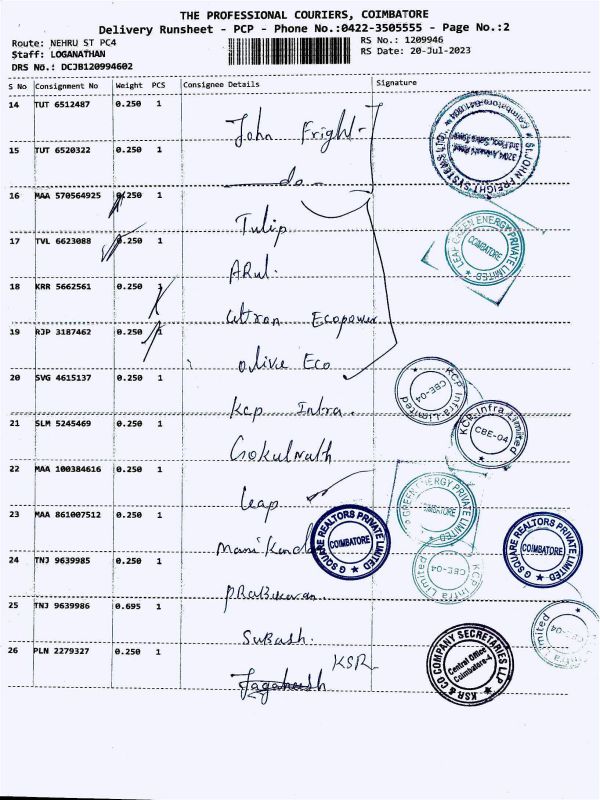 THE PROFESSIONAL COURIERS, COIMBATORE
Delivery Runsheet - PCP - Phone No.:0422-3505555 - Page No.:2
Route: NEHRU ST PC4
RS No.: 1209946
Staff: LOGANATHAN
RS Date: 20-Jul-2023
DRS No.: DCJB120994602
S No Consignment No Weight PCS Consignee Details Signature
14 TUT 6512487 0.250 1
John Fright-
15 TUT 6520322 0.250 1
do-
16 MAA 570564925 0.250 1
Tulip
17 TVL 6623088 0.250 1
ARul.
18 KRR 5662561 0.250 1
Ecopower
19 RJP 3187462 0.250 1
olive Eco
20 SVG 4615137 0.250 1
Kcp Infra.
21 SLM 5245469 0.250 1
Gokulnath
22 MAA 100384616 0.250 1
Leap
23 MAA 861007512 0.250 1
24 TNJ 9639985 0.250 1
PRaBakaran.
25 TNJ 9639986 0.695 1
SuBash.
26 PLN 2279327 0.250 1
KSR
ST.JOHN FREIGHT SYSTEMS LTD.
Coimbatore-641 004
LEAP GREEN ENERGY PRIVATE LIMITED
COIMBATORE
KCP Infra Limited
CBE-04
KCP Infra Limited
CBE-04
GREEN ENERGY PRIVATE LIMITED
COIMBATORE
G SQUARE REALTORS PRIVATE LIMITED
COIMBATORE
G SQUARE REALTORS PRIVATE LIMITED
COIMBATORE
KCP Infra Limited
CBE-04
KSR & CO COMPANY SECRETARIES LLP
Central Office
Coimbatore-4